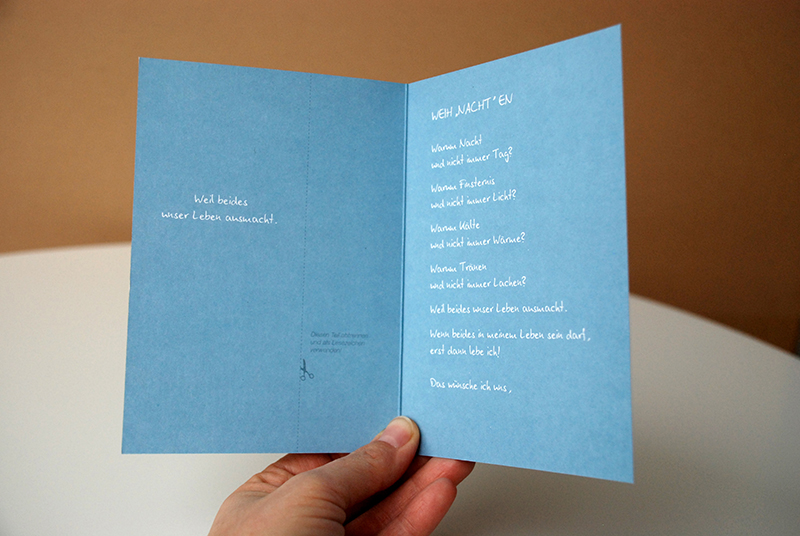 Weil beides
unser Leben ausmacht.
Diesen Teil abtrennen
und als Lesezeichen
verwenden!
WEIH „NACHT“ EN
Warum Nacht
und nicht immer Tag?
Warum Finsternis
und nicht immer Licht?
Warum Kälte
und nicht immer Wärme?
Warum Tränen
und nicht immer Lachen?
Weil beides unser Leben ausmacht.
Wenn beides in meinem Leben sein darf,
erst dann lebe ich!
Das wünsche ich uns,